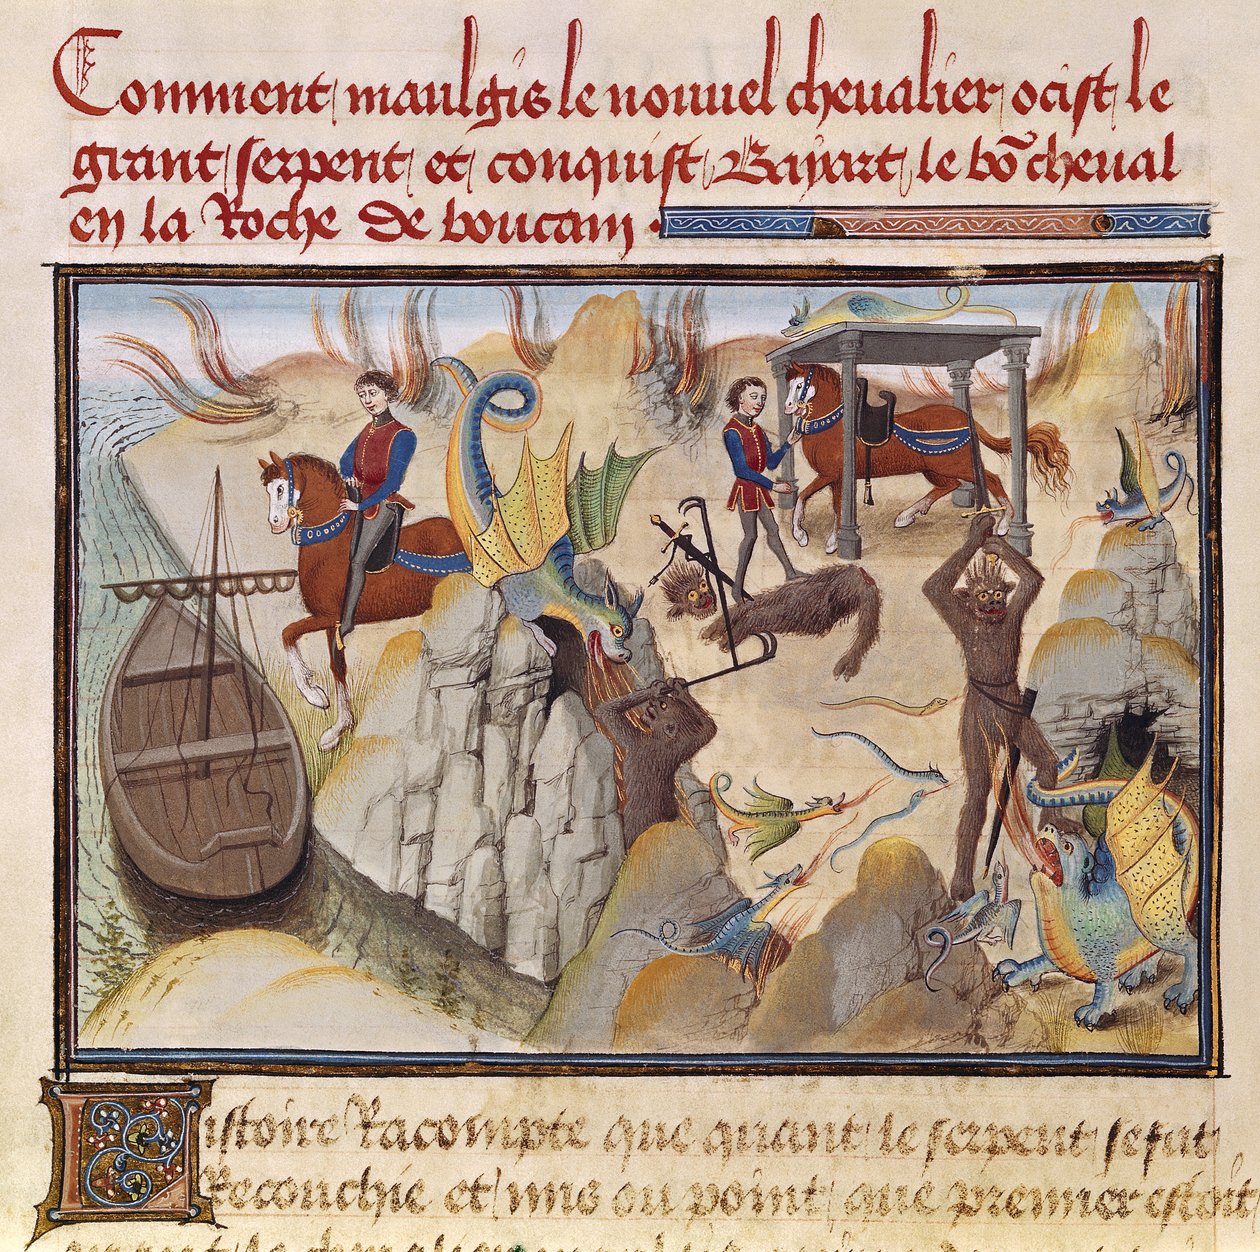 Comment maulgis le nouuel cheualier ocist le
grant serpent et conquist Bayart le bõ cheual
en la Roche de boucam
istoire Racompte que quant le serpent se fut
Recouchie et mis ou point que premier estoit